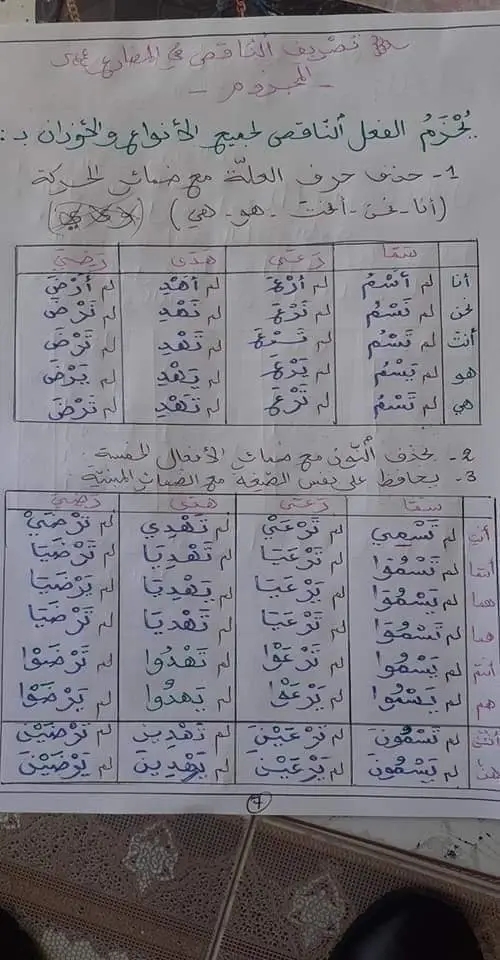 تصريف الناقص في المضارع
- المجزوم -
يُجْزَمُ الفعل الناقص لجميع الأنواع والأوزان بـ:
1- حذف حرف العلّة مع ضمائر الحركة
(أنا - نحن - أنت - هو - هي)
سَمَا رَعَى هَدَى رَضِيَ
أنا لم أَسْمُ لم أَرْعَ لم أَهْدِ لم أَرْضَ
نحن لم نَسْمُ لم نَرْعَ لم نَهْدِ لم نَرْضَ
أنتَ لم تَسْمُ لم تَرْعَ لم تَهْدِ لم تَرْضَ
هو لم يَسْمُ لم يَرْعَ لم يَهْدِ لم يَرْضَ
هي لم تَسْمُ لم تَرْعَ لم تَهْدِ لم تَرْضَ
2- بحذف النّون مع ضمائر الأفعال الخمسة
3- يحافظ على نفس الصّيغة مع الضمائر المبنيّة
سما رَعَى هَدَى رَضِيَ
أنتِ لم تَسْمِي لم تَرْعَيْ لم تَهْدِي لم تَرْضَيْ
أنتما لم تَسْمُوَا لم تَرْعَيَا لم تَهْدِيَا لم تَرْضَيَا
هما لم يَسْمُوَا لم يَرْعَيَا لم يَهْدِيَا لم يَرْضَيَا
هما لم تَسْمُوَا لم تَرْعَيَا لم تَهْدِيَا لم تَرْضَيَا
أنتم لم تَسْمُوا لم تَرْعَوْا لم تَهْدُوا لم تَرْضَوْا
هم لم يَسْمُوا لم يَرْعَوْا لم يَهْدُوا لم يَرْضَوْا
أنتنّ لم تَسْمُونَ لم تَرْعَيْنَ لم تَهْدِينَ لم تَرْضَيْنَ
هنّ لم يَسْمُونَ لم يَرْعَيْنَ لم يَهْدِينَ لم يَرْضَيْنَ
7